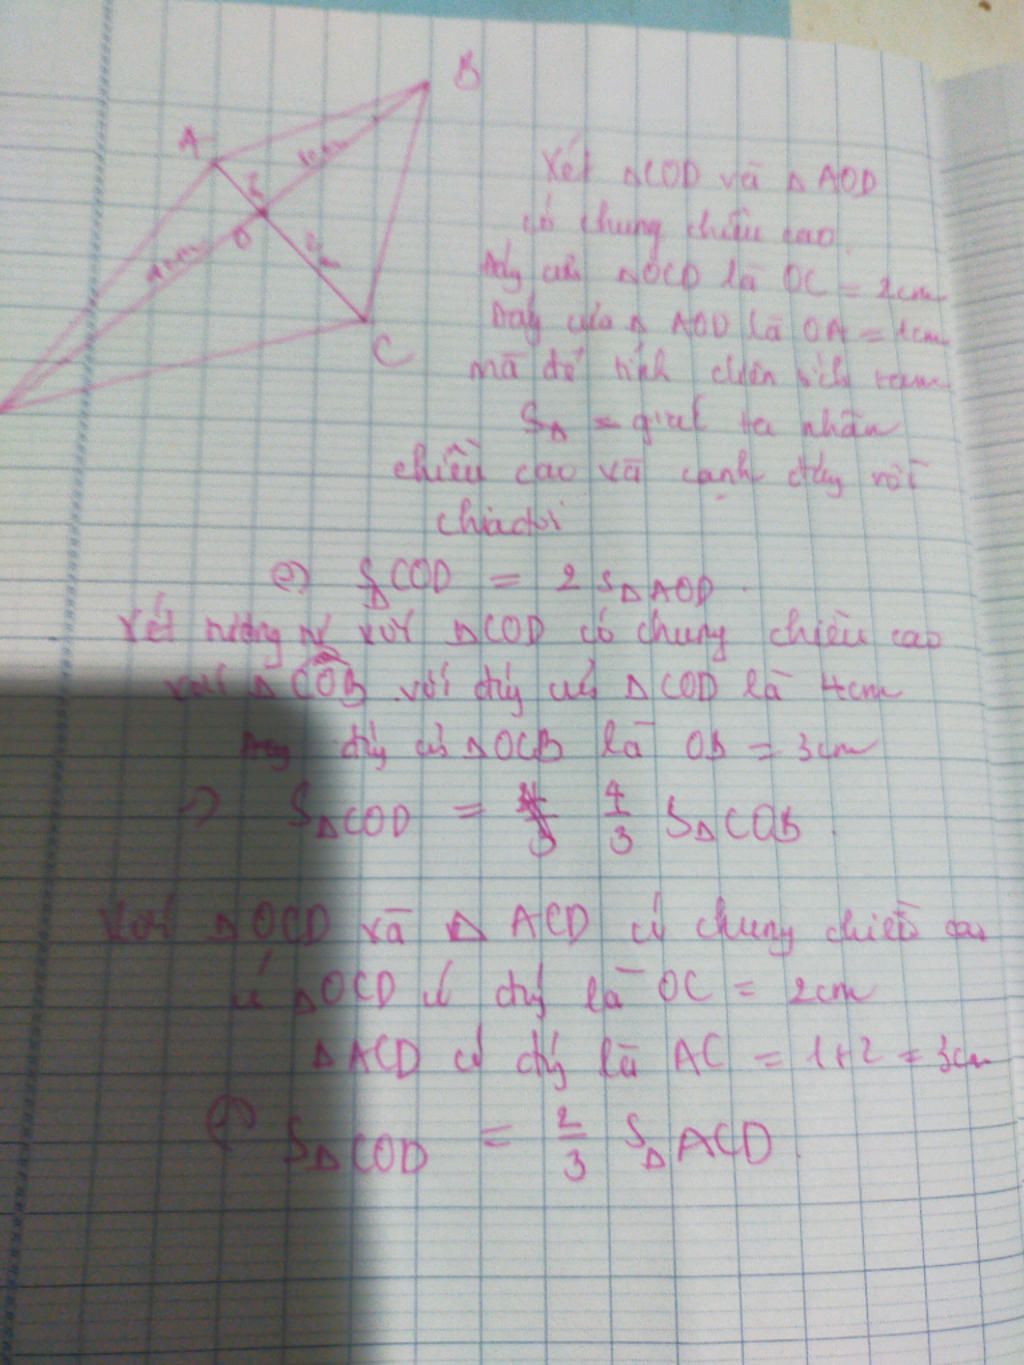 B
A
O
C
Xét ΔCOD và Δ AOD
có chung chiều cao.
Đáy của ΔOCD là OC = 2cm
Đáy của Δ AOD là OA = 1cm
mà để tính diện tích
SΔ = ta nhân
chiều cao và cạnh đáy rồi
chia đôi
SΔCOD = 2 SΔ AOD.
Xét tương tự với ΔCOD có chung chiều cao
với ΔCOB với đáy của ΔCOD là 4cm
đáy của ΔOCB là OB = 3cm
=> SΔCOD = 4/3 SΔCOB.
Với ΔOCD và Δ ACD có chung chiều cao
ΔOCD có đáy là OC = 2cm
ΔACD có đáy là AC = 1+2 = 3cm
SΔCOD = 2/3 SΔACD.